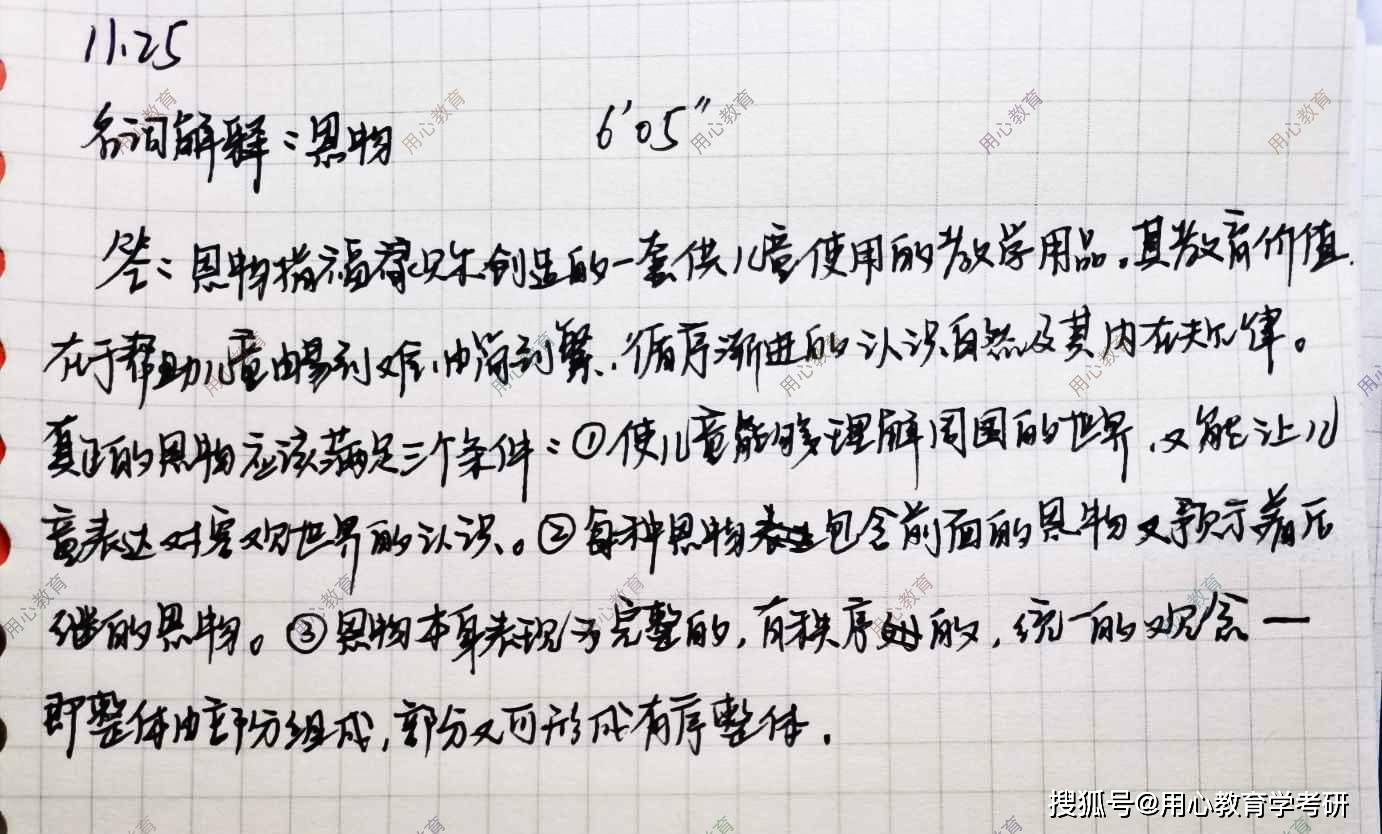 11.25
名词解释：恩物 6′05″
答：恩物指福禄贝尔创造的一套供儿童使用的教学用品。其教育价值
在于帮助儿童由易到难、由简到繁、循序渐进的认识自然及其内在规律。
真正的恩物应该满足三个条件：①使儿童能够理解周围的世界，又能让儿
童表达对客观世界的认识。②每种恩物包含前面的恩物又预示着后
继的恩物。③恩物本身表现为完整的，有秩序的，统一的观念—
即整体由部分组成，部分又可形成有序整体.
用心教育 用心教育 用心教育 用心教育 用心教育
搜狐号@用心教育学考研